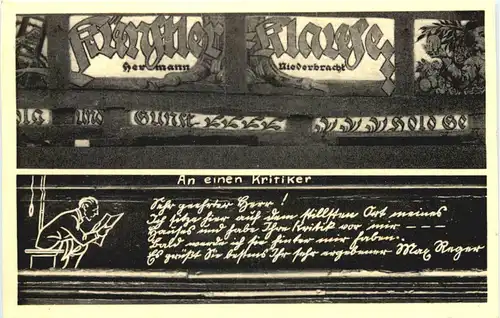 Künstler Klause
Hermann Niederbracht
und Gunst LLLL hold Ge
An einen Kritiker
Sehr geehrter Herr!
Ich sitze hier auf dem stillsten Ort meines
Hauses und habe Ihre Kritik vor mir ---
Bald werde ich sie hinter mir haben.
Es grüßt Sie bestens Ihr sehr ergebener Max Reger